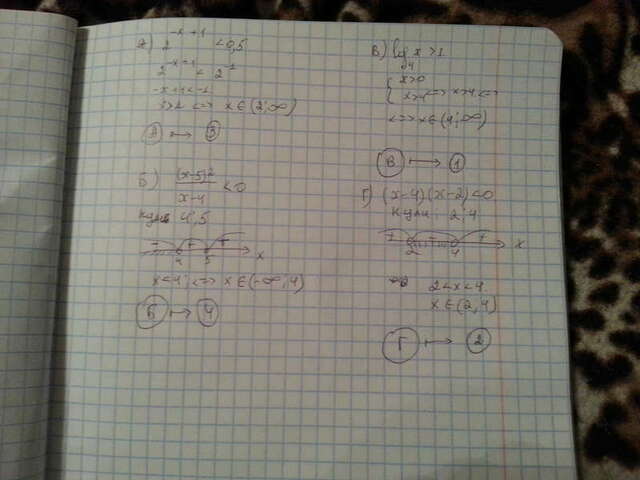 А) 2^{-x+1} < 0,5
2^{-x+1} < 2^{-1}
-x+1 < -1
x>2 <=> x∈(2;∞)
А ↦ 3
Б) (x-5)² / (x-4) < 0
Нули 4,5
- + +
4 5 x
x<4 <=> x∈(-∞;4)
Б ↦ 4
В) log₄ x > 1
{ x>0
x>4 <=> x>4 <=>
<=> x∈(4;∞)
В ↦ 1
Г) (x-4)(x-2)<0
Нули: 2; 4
+ - +
2 4 x
2<x<4
x∈(2,4)
Г ↦ 2